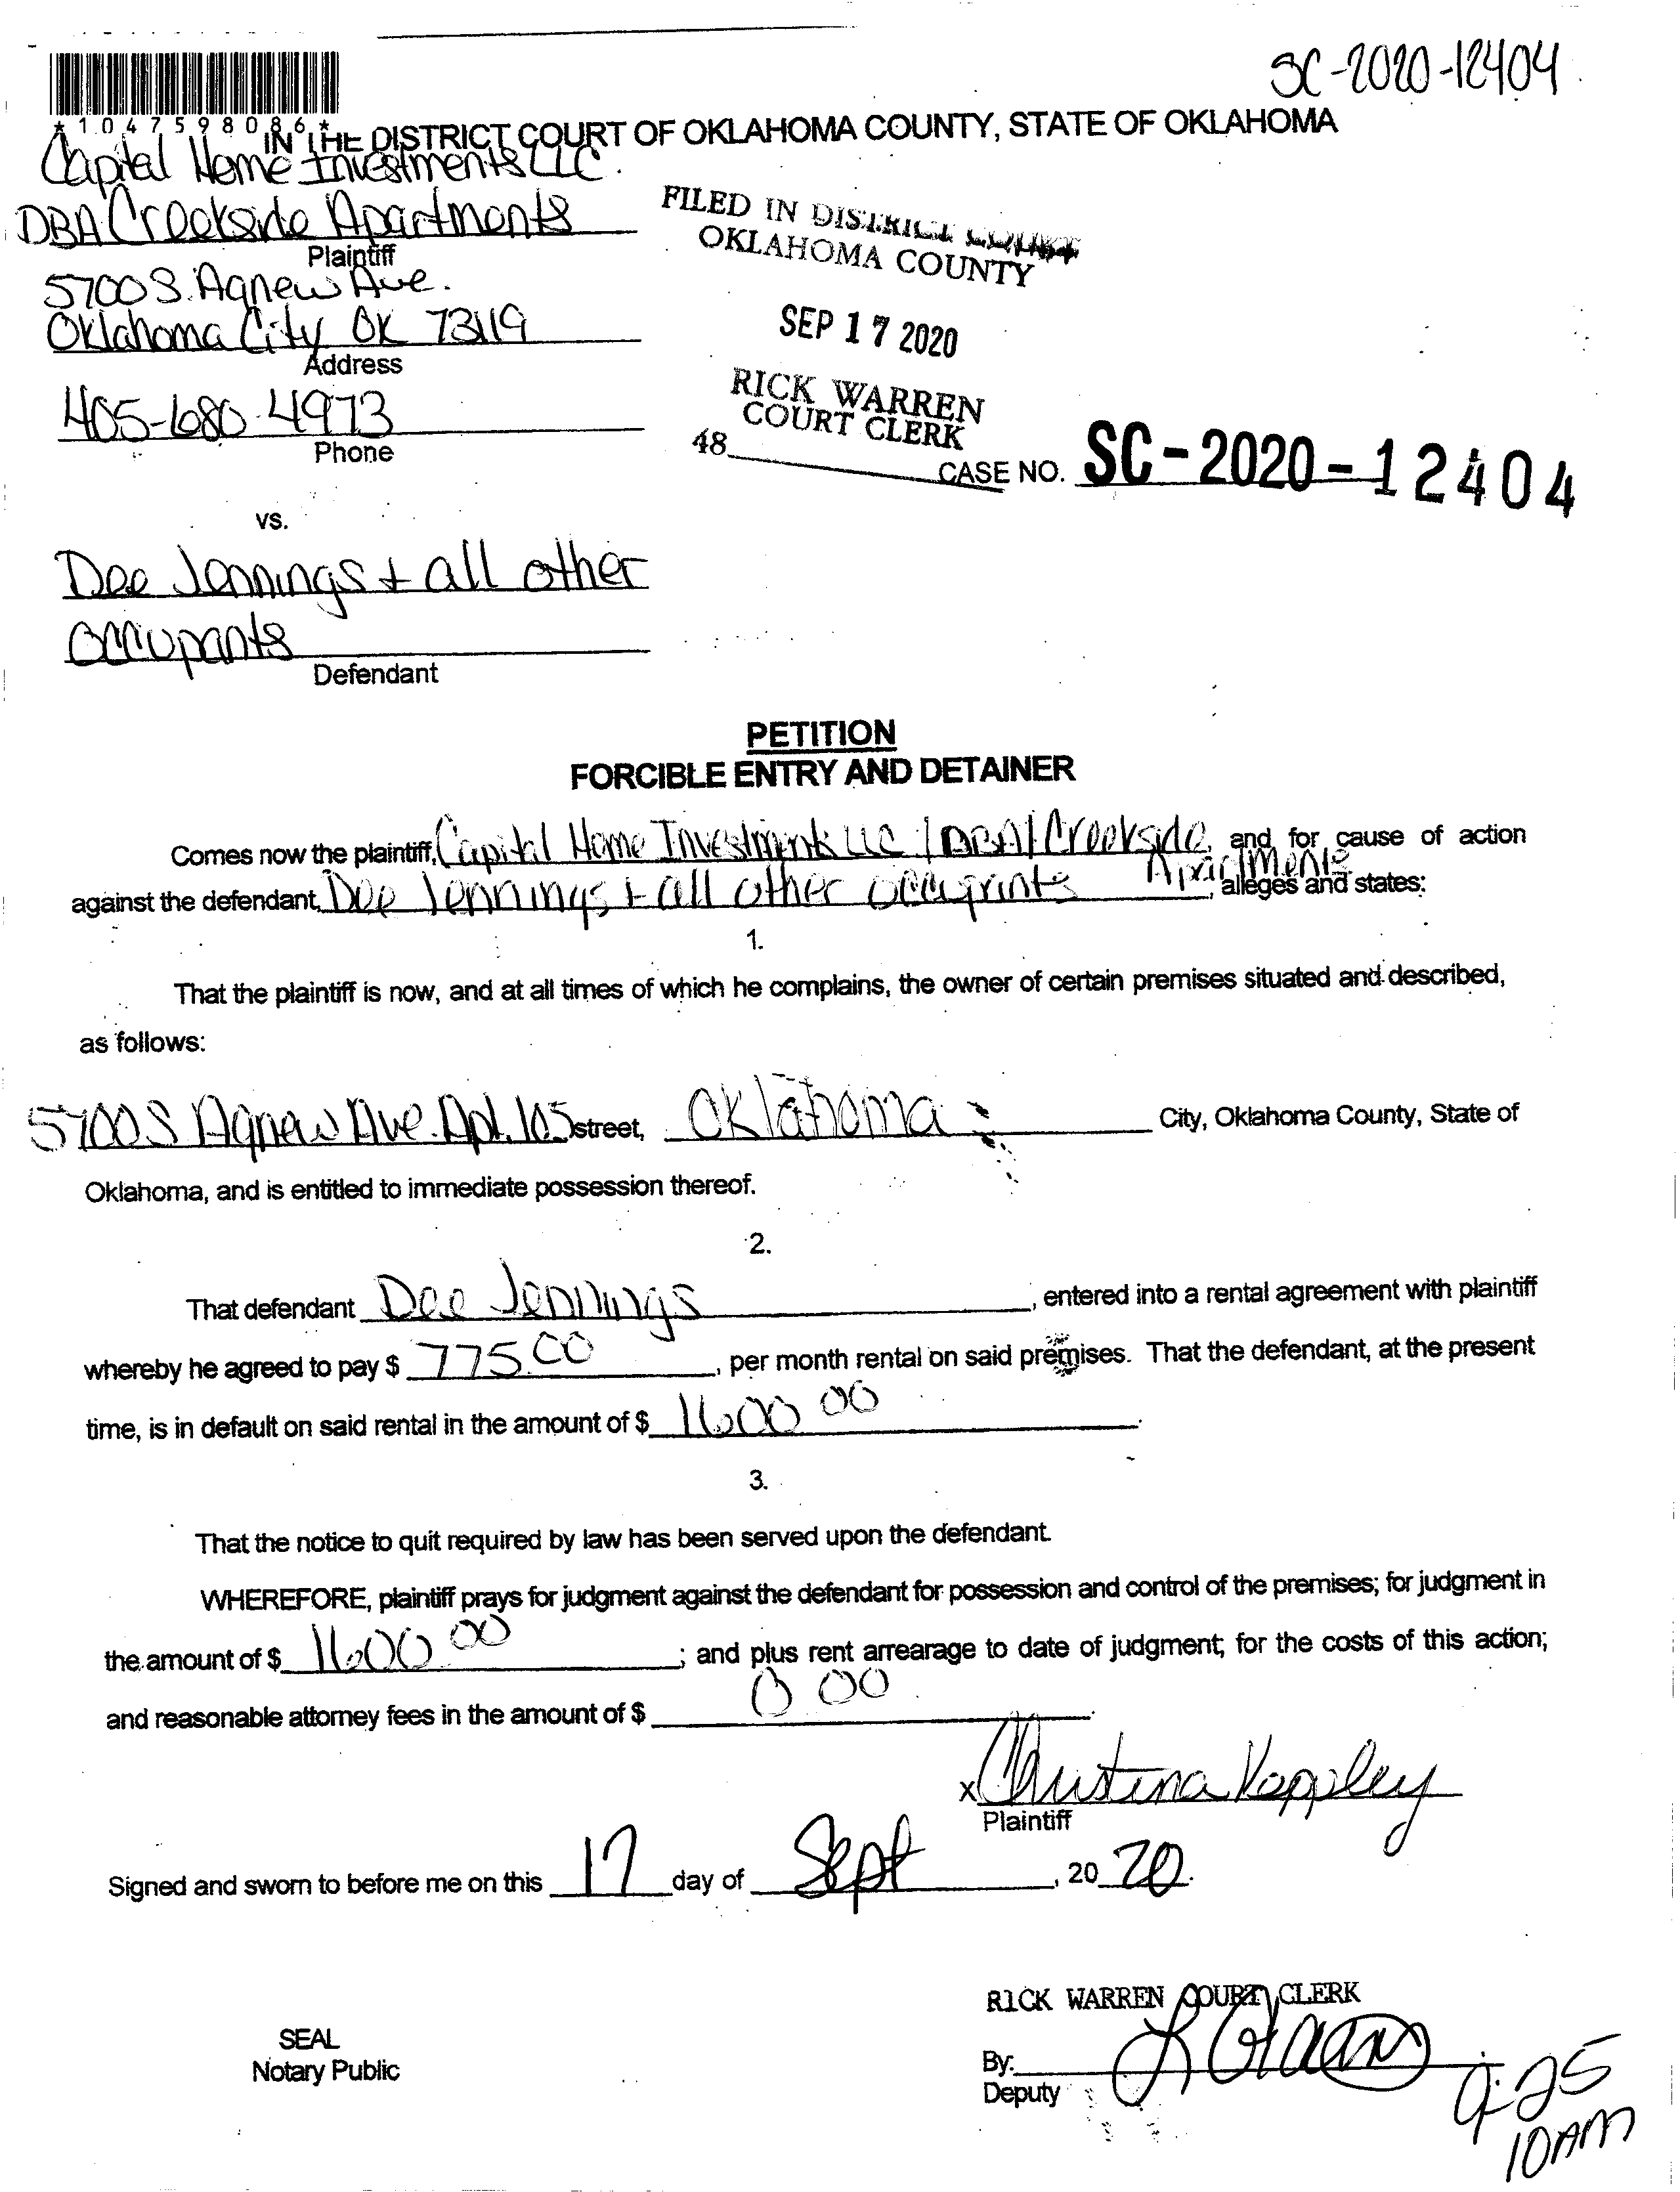 SC-2020-12404
*1047598086*
IN THE DISTRICT COURT OF OKLAHOMA COUNTY, STATE OF OKLAHOMA
Capital Home Investments LLC
DBA Creekside Apartments
Plaintiff
5700 S. Agnew Ave.
Oklahoma City OK 73119
Address
405-680-4973
Phone
FILED IN DISTRICT COURT
OKLAHOMA COUNTY
SEP 17 2020
RICK WARREN
COURT CLERK
48
CASE NO. SC-2020-12404
vs.
Dee Jennings + all other
occupants
Defendant
PETITION
FORCIBLE ENTRY AND DETAINER
Comes now the plaintiff, Capital Home Investments LLC / DBA / Creekside Apartments, and for cause of action
against the defendant, Dee Jennings + all other occupants, alleges and states:
1.
That the plaintiff is now, and at all times of which he complains, the owner of certain premises situated and described,
as follows:
5700 S Agnew Ave. Apt. 105 street, Oklahoma City, Oklahoma County, State of
Oklahoma, and is entitled to immediate possession thereof.
2.
That defendant Dee Jennings, entered into a rental agreement with plaintiff
whereby he agreed to pay $ 775.00, per month rental on said premises. That the defendant, at the present
time, is in default on said rental in the amount of $ 1600 00.
3.
That the notice to quit required by law has been served upon the defendant.
WHEREFORE, plaintiff prays for judgment against the defendant for possession and control of the premises; for judgment in
the amount of $ 1600 00; and plus rent arrearage to date of judgment; for the costs of this action;
and reasonable attorney fees in the amount of $ 0 00.
x Christina
Plaintiff
Signed and sworn to before me on this 17 day of Sept, 20 20.
RICK WARREN COURT CLERK
SEAL
Notary Public
By:
Deputy
9-25
10AM